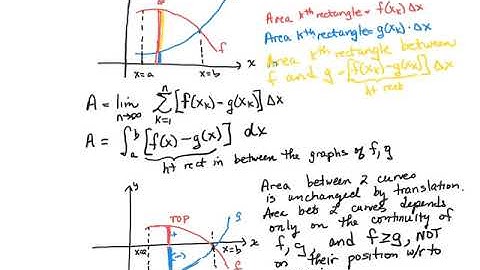 Area kth rectangle = f(xk) Δx
Area kth rectangle = g(xk) · Δx
Area kth rectangle between
f and g = [f(xk) - g(xk)] Δx
ht rect
x=a x=b x
f
A = lim n→∞ n Σ k=1 [f(xk) - g(xk)] Δx
A = ∫ab [f(x) - g(x)] dx
ht rect in between the graphs of f, g
y
TOP
g
x=b x
f
Area between 2 curves
is unchanged by translation.
Area bet 2 curves depends
only on the continuity of
f, g, and f≥g, NOT
on their position w/r to